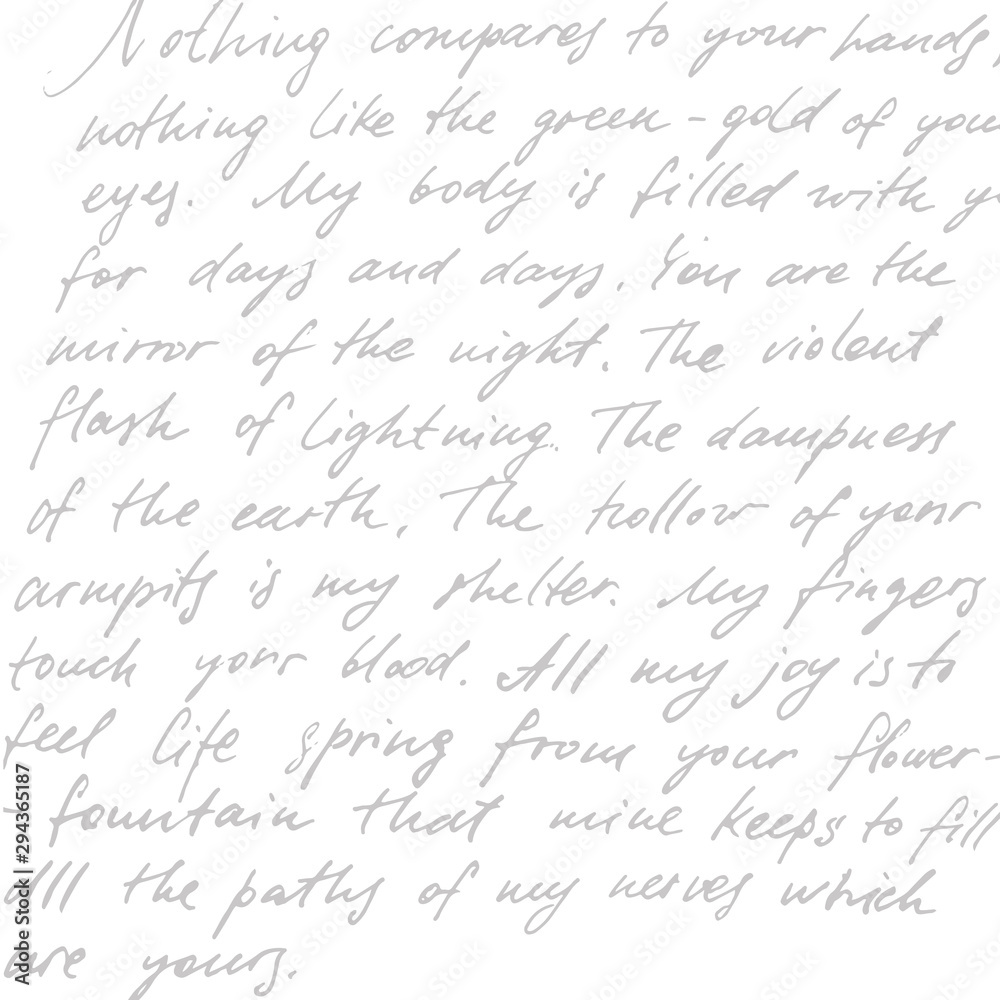 Nothing compares to your hands,
nothing like the green-gold of you
eyes. My body is filled with yo
for days and days. You are the
mirror of the night. The violent
flash of lightning. The dampness
of the earth. The hollow of your
armpits is my shelter. My fingers
touch your blood. All my joy is to
feel life spring from your flower-
fountain that mine keeps to fill
all the paths of my nerves which
are yours.
Adobe Stock | #294365187